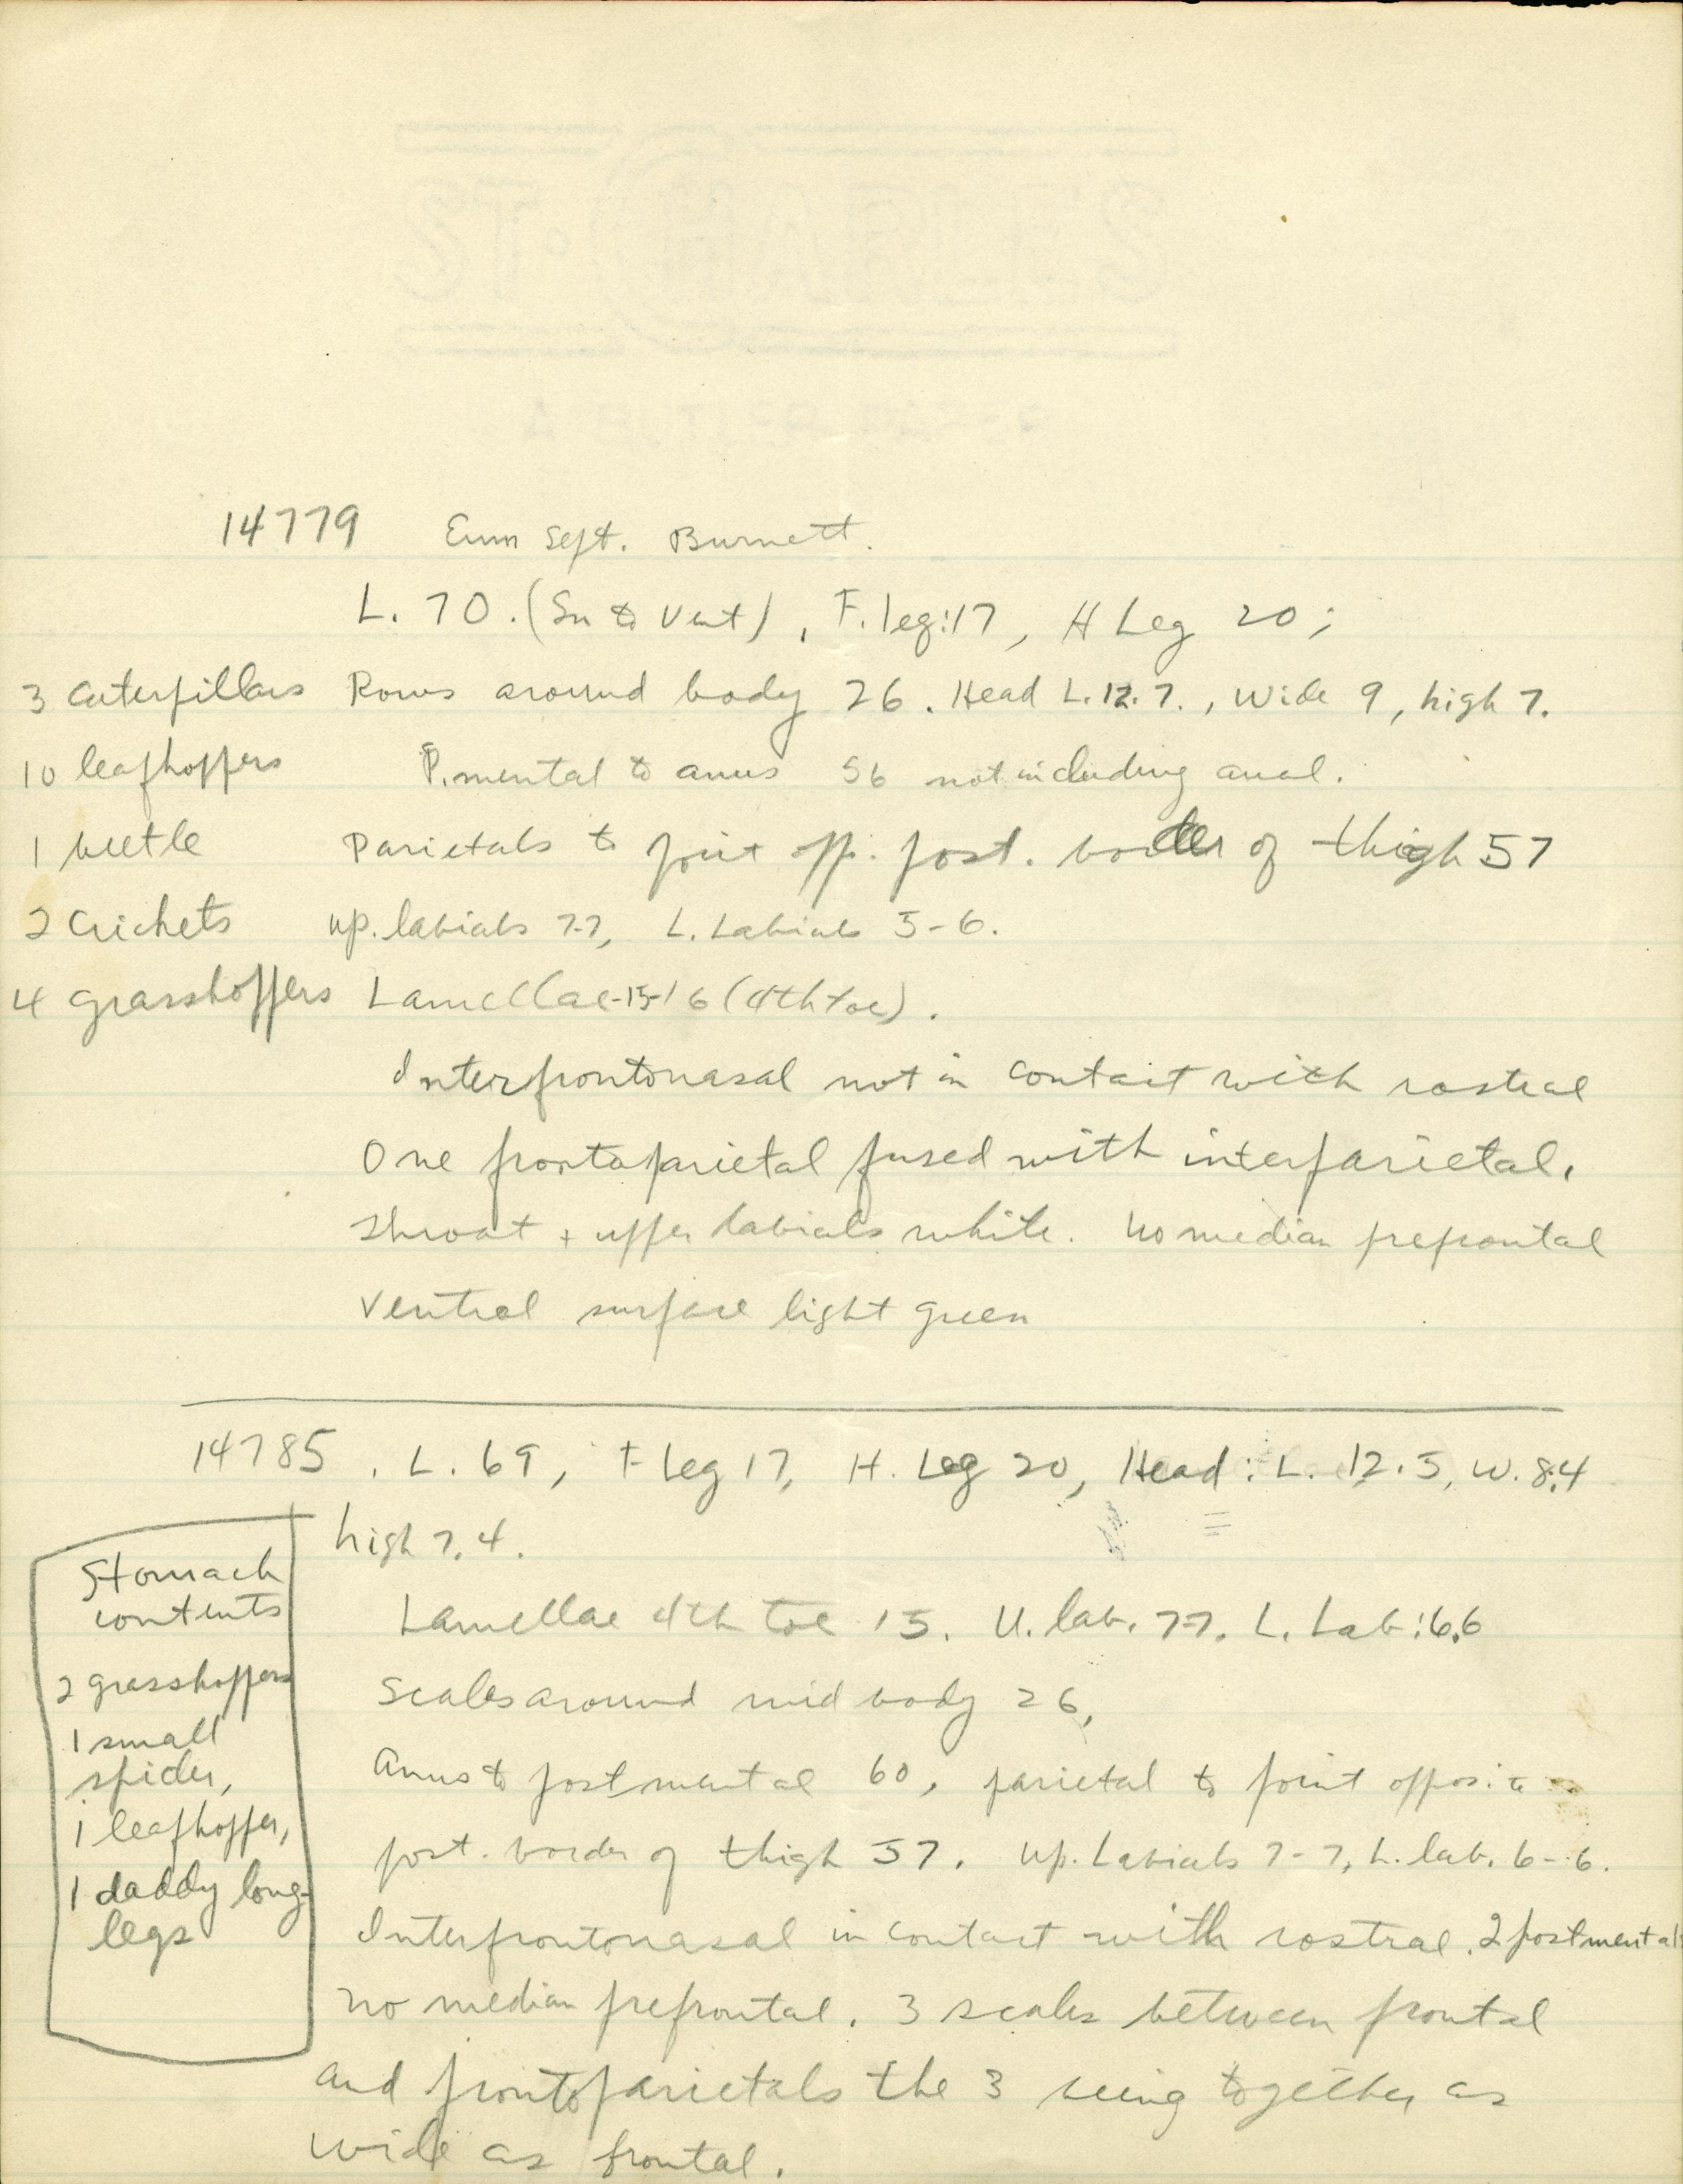 14779 Eum Sept. Burnett.
L. 70. (Sn to Vent), F. leg: 17, H Leg 20;
3 Caterpillars Rows around body 26. Head L. 12.7., Wide 9, high 7.
10 leafhoppers P. mental to anus 56 not including anal.
1 beetle Parietals to point opp. post. border of thigh 57
2 Crickets up. labials 7-7, L. Labials 5-6.
4 grasshoppers Lamellae-15-16 (4th toe).
Interfrontonasal not in contact with rostral
One frontoparietal fused with interparietal.
Throat + upper labials white. No median prefrontal
Ventral surface light green
14785. L. 69, F Leg 17, H. Leg 20, Head: L. 12.5, W. 8.4
high 7.4.
Stomach
contents
2 grasshoppers
1 small
spider,
1 leafhopper,
1 daddy long-
legs
Lamellae 4th toe 15. U. lab. 7-7. L. Lab: 6.6
Scales around mid body 26,
Anus to postmental 60, parietal to point opposite
post. border of thigh 57. Up. Labials 7-7, L. lab. 6-6.
Interfrontonasal in contact with rostral. 2 postmental
No median prefrontal. 3 scales between frontal
and frontoparietals the 3 being together as
wide as frontal.